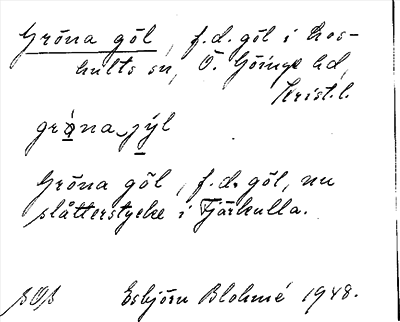 Gröna göl, f.d. göl i Los-
hults sn, Ö. Göinge hd,
Krist.l.
gröna jýl
Gröna göl, f.d. göl, nu
slåtterstycke i Tjärkulla.
Esbjörn Blohmé 1948.